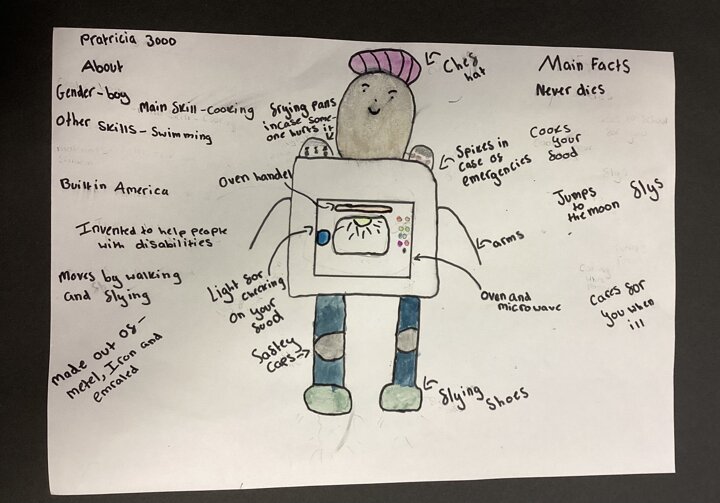 Pratricia 3000
About
Gender-boy
Main skill-cooking
Other skills-swimming
Built in America
Invented to help people
with disabilities
Moves by walking
and flying
Made out of-
metel, Iron and
emraled
frying pans
incase some-
one hurts it
Oven handel
Light for
checking
on your
food
Saftey
caps
Chef
hat
Spikes in
case of
emergencies
arms
Oven and
microwave
flying shoes
Main Facts
Never dies
Cooks
your
food
Jumps
to
the moon
flys
Cares for
you when
ill